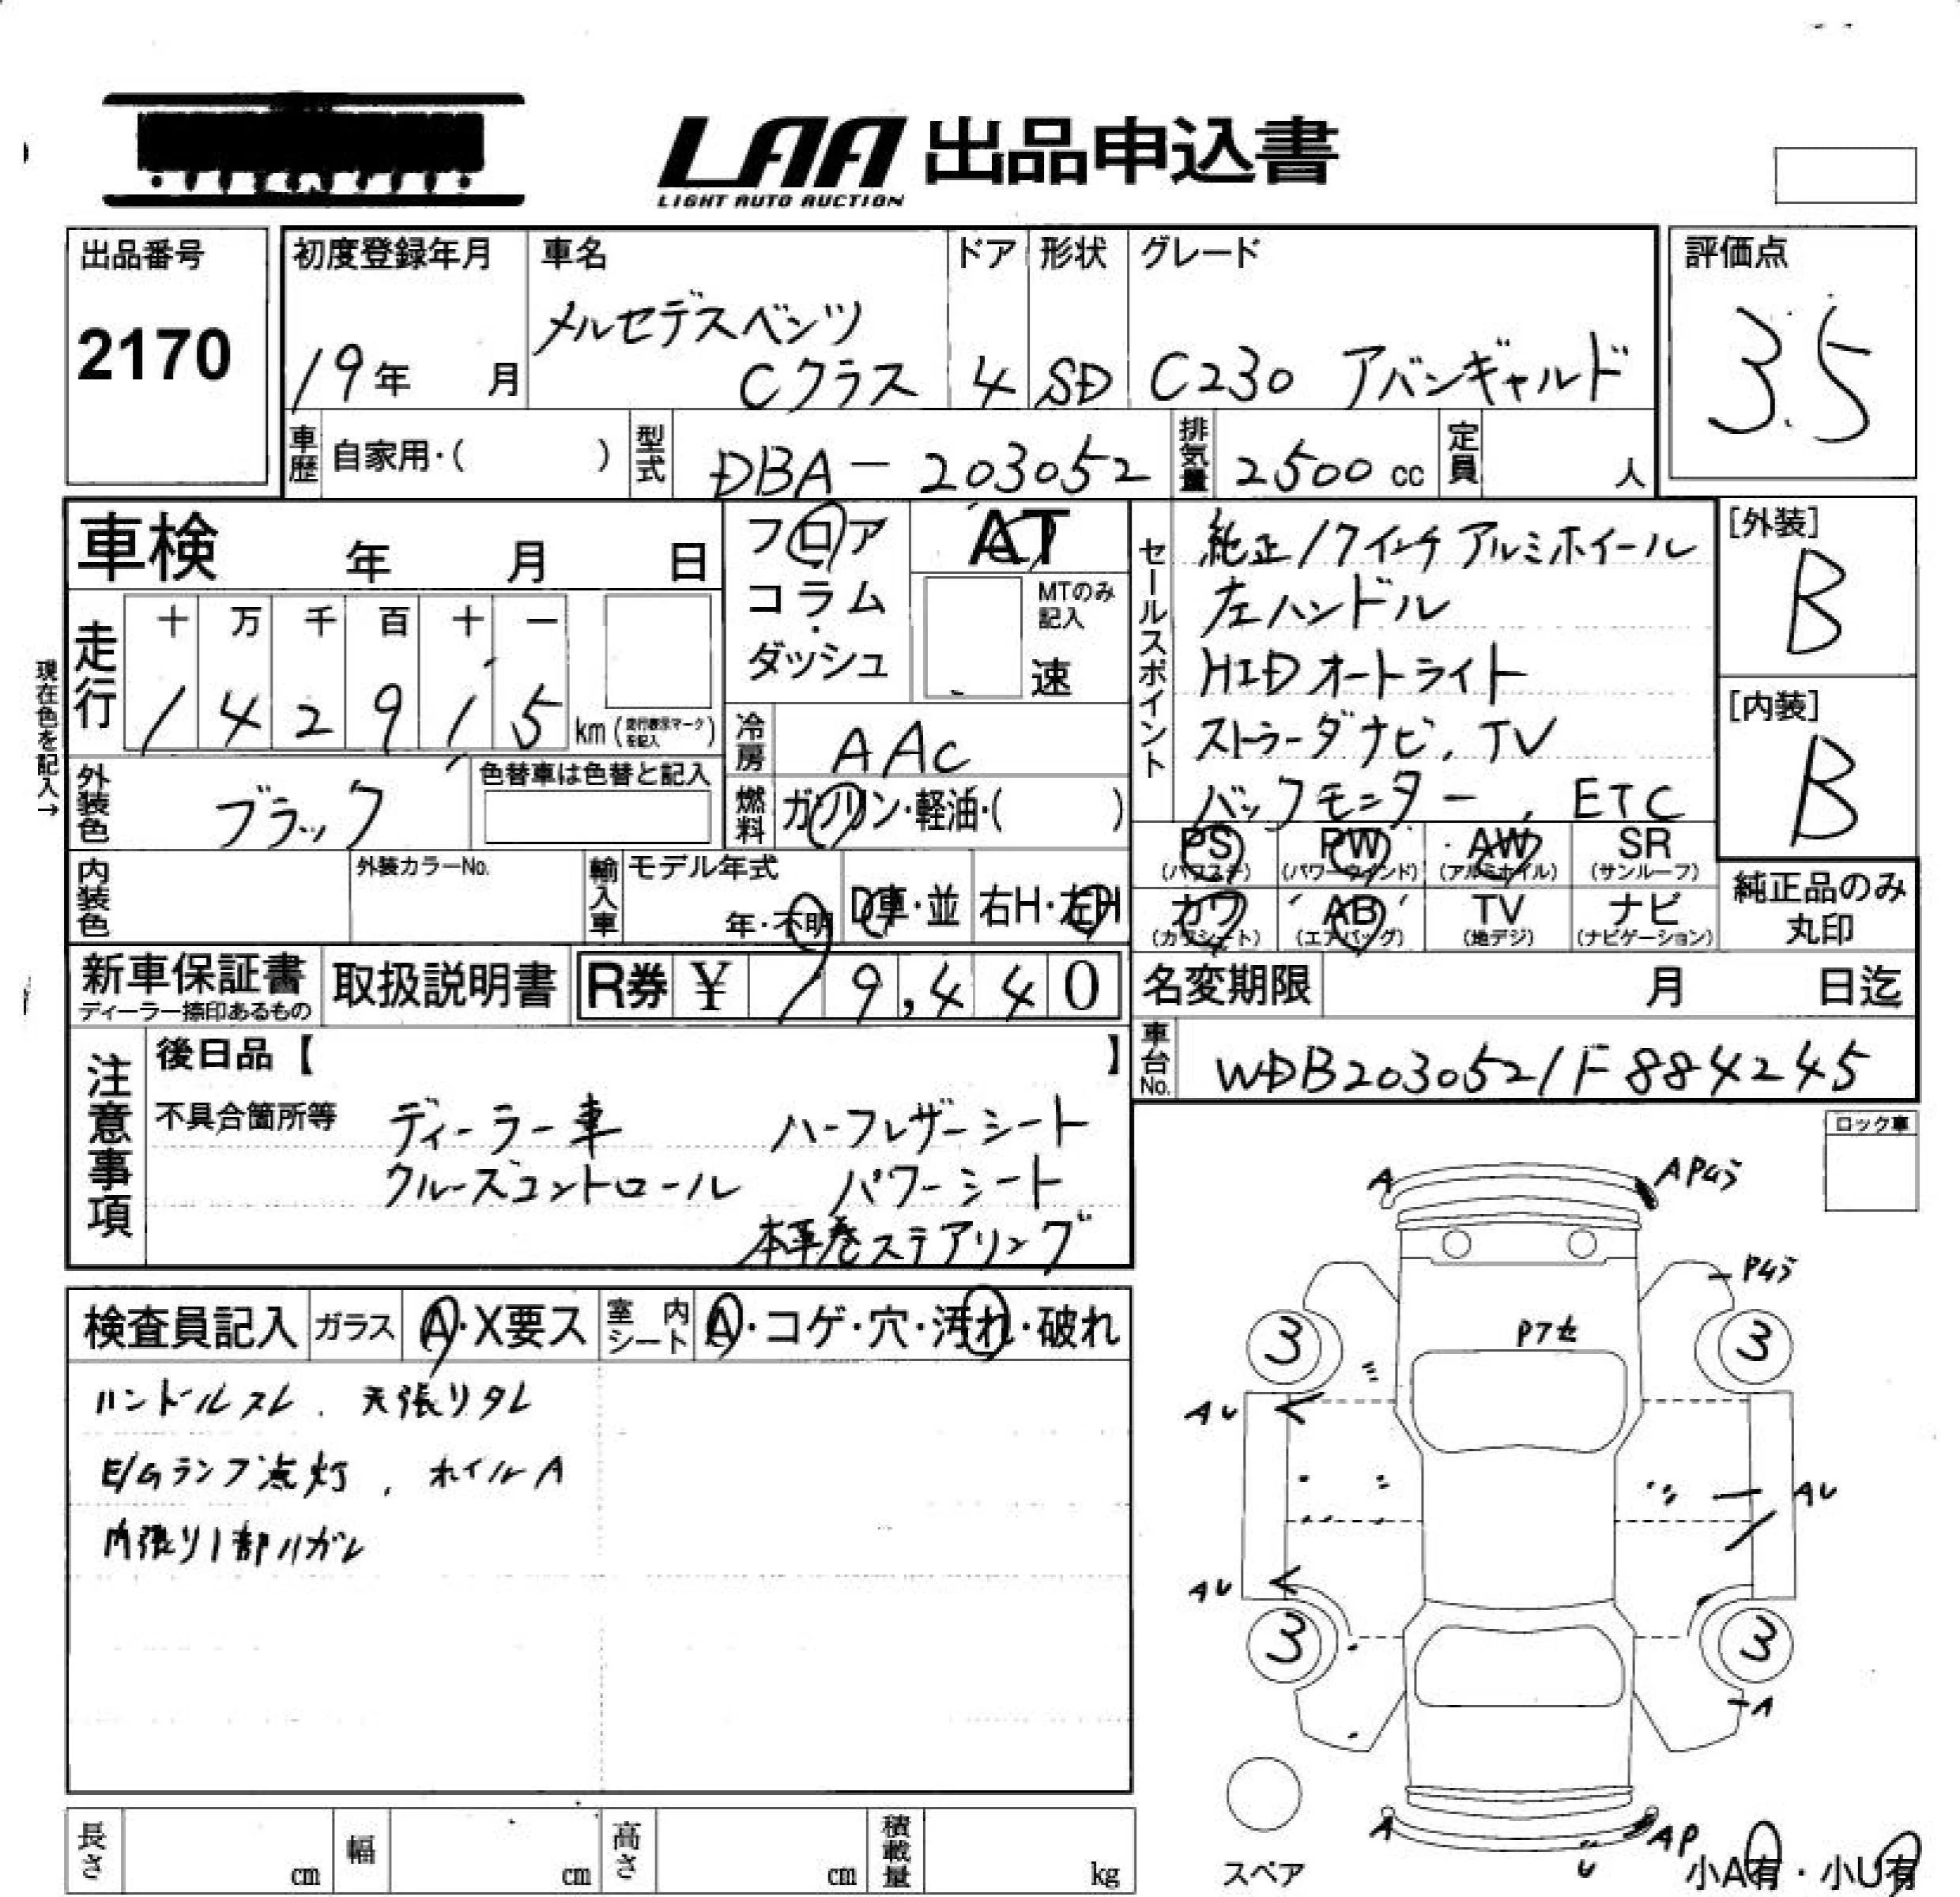 LAA 出品申込書
LIGHT AUTO AUCTION
出品番号
2170
初度登録年月
19年 月
車名
メルセデスベンツ
Cクラス
ドア
4
形状
SD
グレード
C230 アバンギャルド
評価点
3.5
車歴 自家用・( )
型式 DBA-203052
排気量 2500 cc
定員 人
車検 年 月 日
フロア
コラム
・
ダッシュ
AT
MTのみ
記入
速
現在色を記入→
走行
十 万 千 百 十 一
1 4 2 9 1 5 km (走行表示マークを記入)
冷房 AAC
燃料 ガソリン・軽油・( )
外装色 ブラック
色替車は色替と記入
内装色
外装カラーNo.
輸入車
モデル年式
年・不明
D車・並
右H・左H
セールスポイント
純正17インチアルミホイール
左ハンドル
HIDオートライト
ストラーダナビ、TV
バックモニター、ETC
[外装]
B
[内装]
B
PS (パワステ)
PW (パワーウインド)
AW (アルミホイル)
SR (サンルーフ)
カワ (カワシート)
AB (エアバッグ)
TV (地デジ)
ナビ (ナビゲーション)
純正品のみ
丸印
新車保証書
ディーラー捺印あるもの
取扱説明書
R券 ¥ 19,440
名変期限 月 日迄
車台No. WDB2030521F884245
注意事項
後日品【 】
不具合箇所等
ディーラー車 ハーフレザーシート
クルーズコントロール パワーシート
本革巻ステアリング
ロック車
検査員記入
ガラス A・X要ス
室内シート A・コゲ・穴・汚れ・破れ
ハンドルスレ、天張りタレ
E/Gランプ点灯、ホイルA
内張り1部ハガレ
A
AP
P
Pアセ
3
3
AU
AU
AU
3
3
A
A
AP
U
スペア
小A有・小U有
長さ cm
幅 cm
高さ cm
積載量 kg